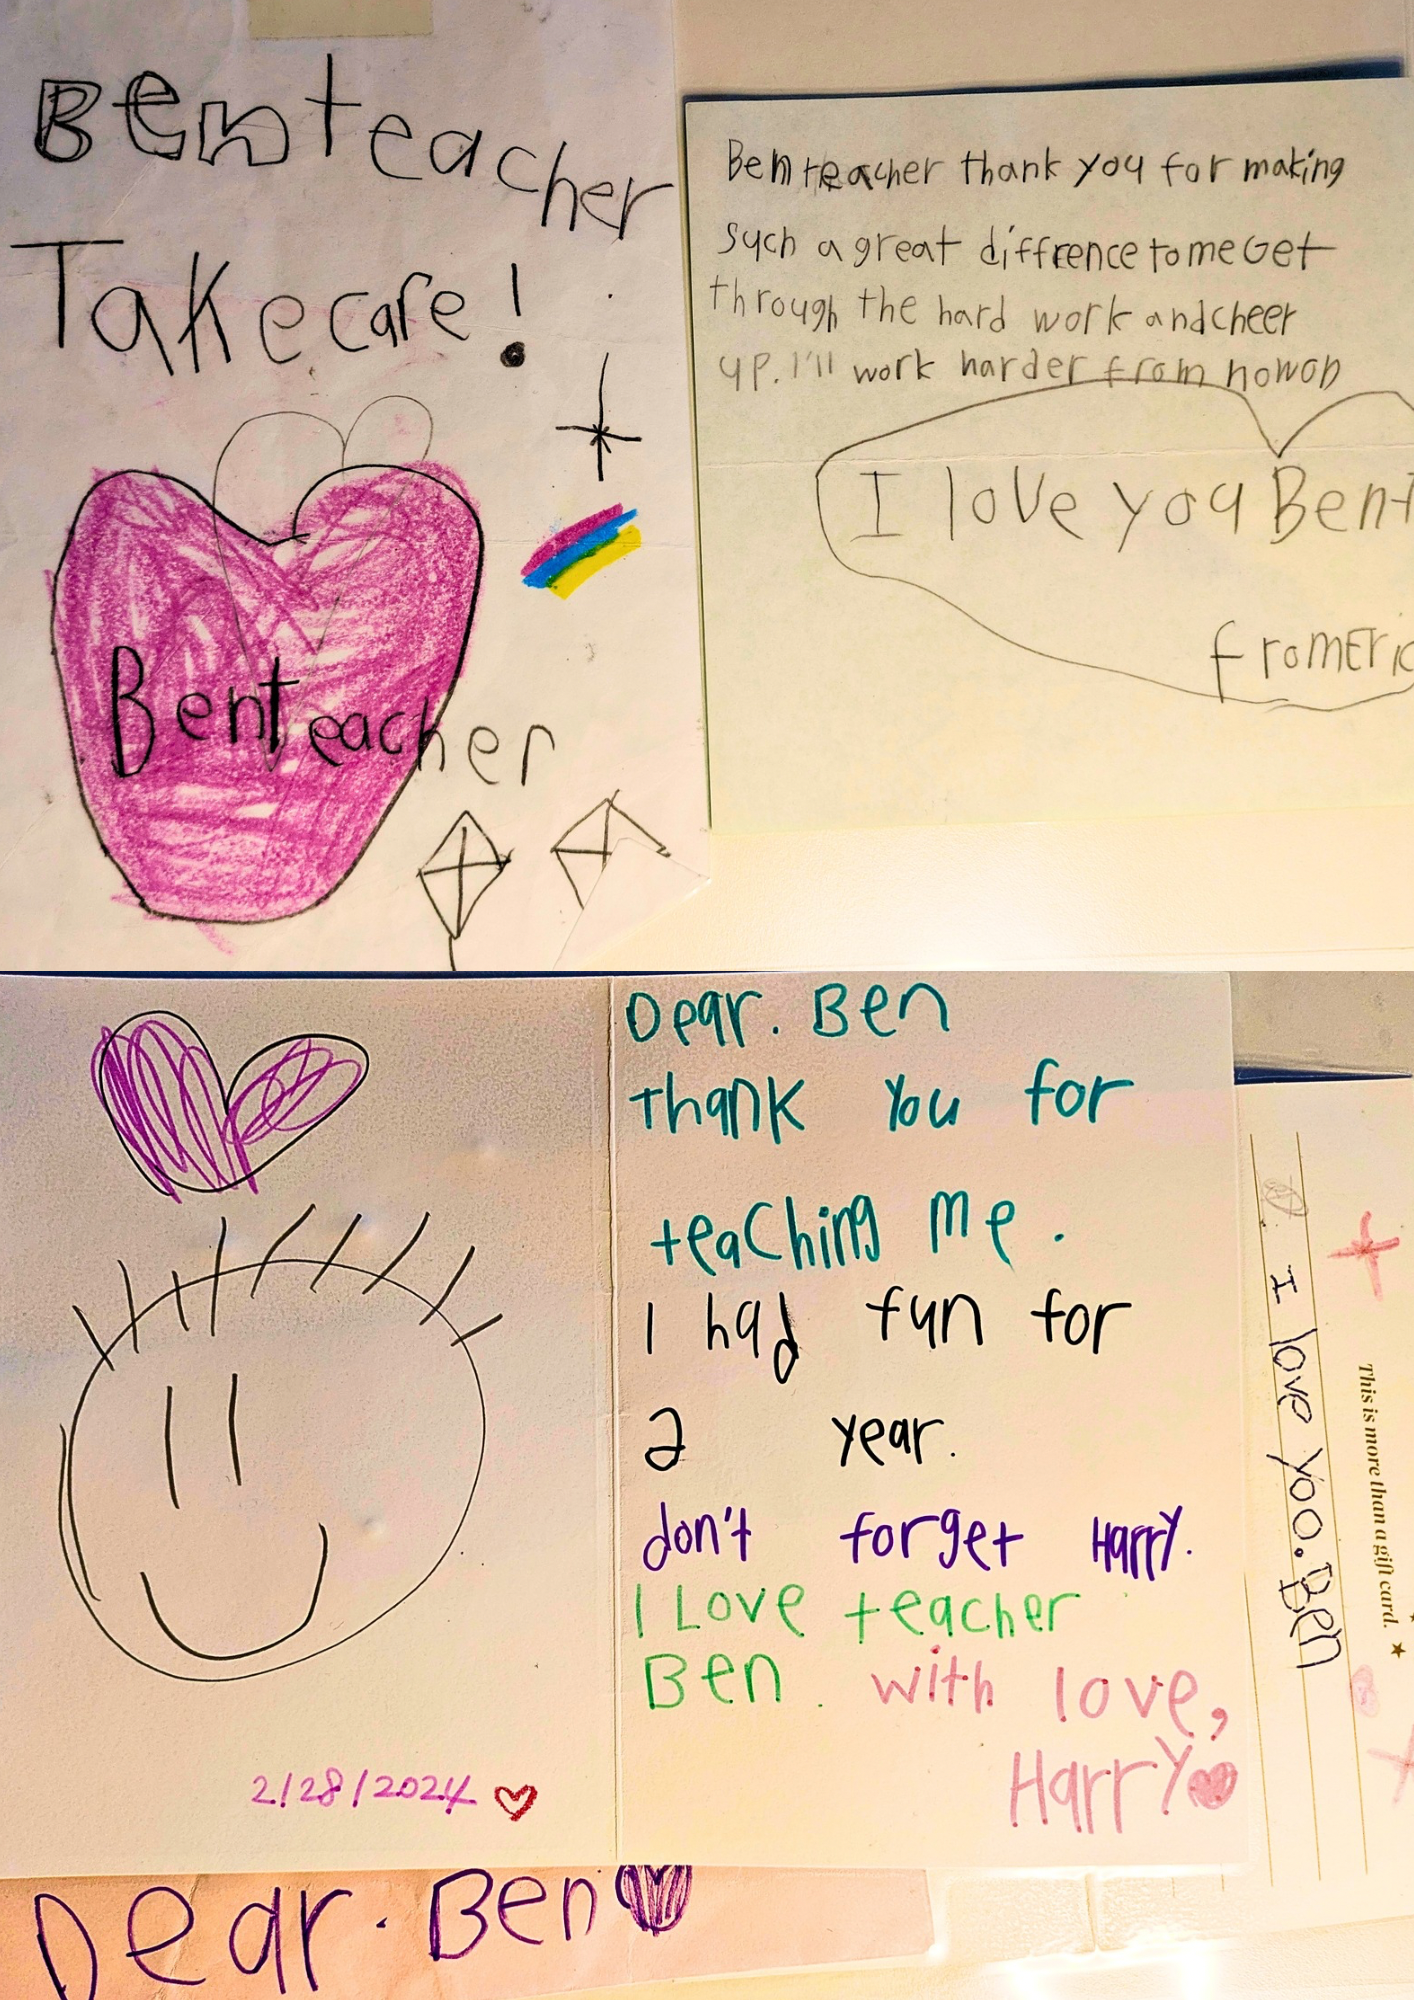 Ben teacher
Take care!
Ben teacher
Ben teacher thank you for making
such a great diffrence to me Get
through the hard work and cheer
up. I'll work harder from now on
I love you Bent
from Eric
Dear. Ben
Thank You for
teaching me.
I had fun for
a year.
don't forget Harry.
I Love teacher
Ben. with love,
Harry
2/28/2024
I love yoo. Ben
This is more than a gift card.
Dear. Ben